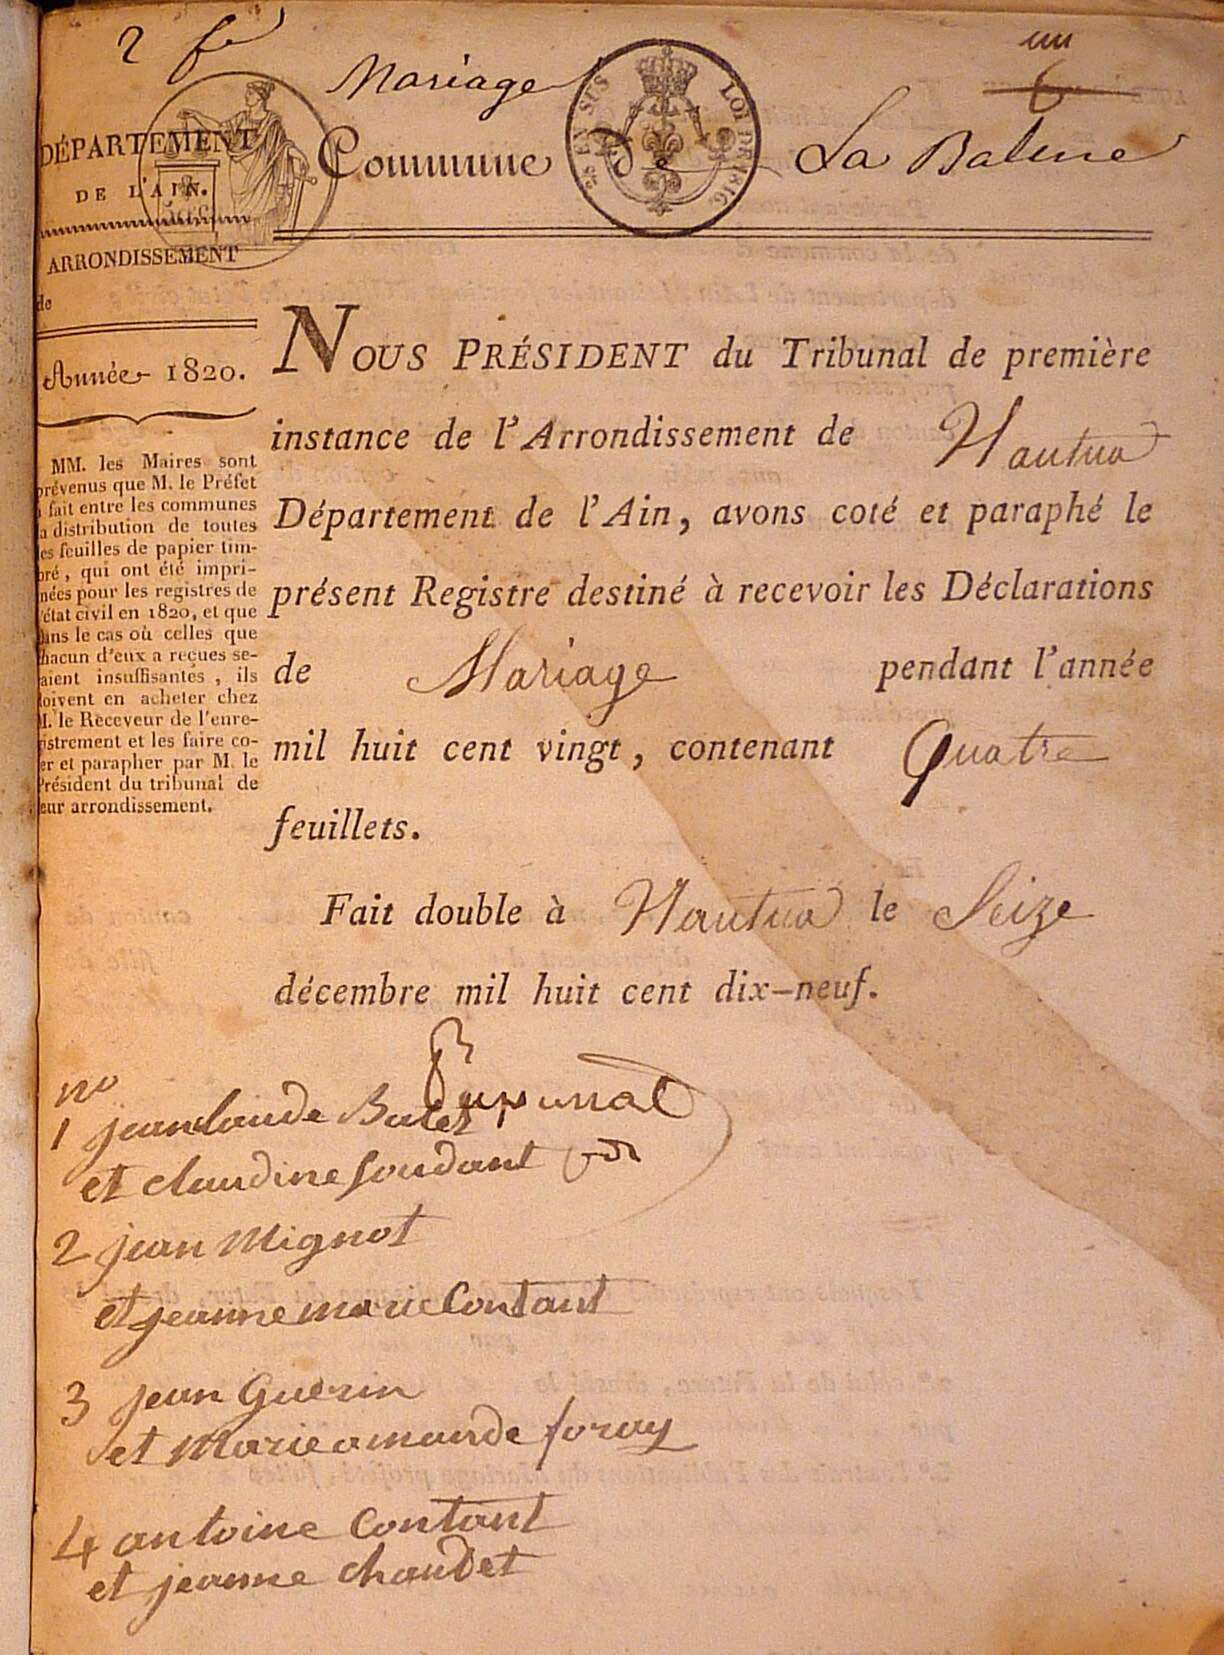 2 f
Mariage
un
6
DÉPARTEMENT
DE L'AIN.
ARRONDISSEMENT
de
Année 1820.
Commune de La Balme
25 EN SUS LOI DE 1816.
MM. les Maires sont
prévenus que M. le Préfet
a fait entre les communes
la distribution de toutes
les feuilles de papier tim-
bré, qui ont été impri-
mées pour les registres de
l'état civil en 1820, et que
dans le cas où celles que
chacun d'eux a reçues se-
raient insuffisantes, ils
doivent en acheter chez
M. le Receveur de l'enre-
gistrement et les faire co-
ter et parapher par M. le
Président du tribunal de
leur arrondissement.
NOUS PRÉSIDENT du Tribunal de première
instance de l'Arrondissement de Nantua
Département de l'Ain, avons coté et paraphé le
présent Registre destiné à recevoir les Déclarations
de Mariage pendant l'année
mil huit cent vingt, contenant Quatre
feuillets.
Fait double à Nantua le Seize
décembre mil huit cent dix-neuf.
no
1 jean claude
et claudine soudant
2 jean Mignot
et jeanne marie Contant
3 jean Guerin
et Marie amande foray
4 antoine Contant
et jeanne chaudet